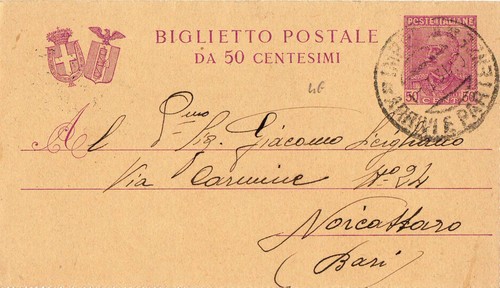 BIGLIETTO POSTALE
DA 50 CENTESIMI
POSTE ITALIANE
50 CENT 50
ARRIVI E PARTENZE
46
Al Pmo Sig. Giacomo
Via Carmine No 24
Noicattaro
Bari